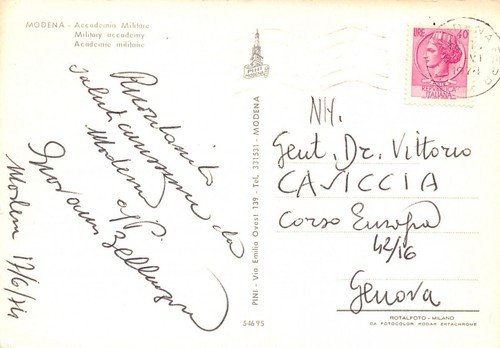 MODENA - Accademia Militare
Military accademy
Academie militaire
PINI
Ricordando
saluti carissimi da
Modena
Modena 17/6/74
PINI - Via Emilia Ovest 139 - Tel. 331531 - MODENA
54695
LIRE 40
REPUBBLICA
ITALIANA
NH.
Gent. Dr. Vittorio
CAVICCIA
Corso Europa
42/16
Genova
ROTALFOTO - MILANO
DA FOTOCOLOR KODAK EKTACHROME